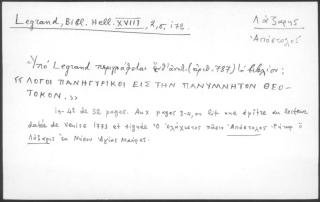 Legrand, Bibl. Hell. XVIII, 2, σ. 173
Λάζαρης
Ἀπόστολος
Ὑπό Legrand περιγράφεται (ἀριθ. 787) τό βιβλίον:
«ΛΟΓΟΙ ΠΑΝΗΓΥΡΙΚΟΙ ΕΙΣ ΤΗΝ ΠΑΝΥΜΝΗΤΟΝ ΘΕΟ-
ΤΟΚΟΝ.»
in-4º de 52 pages. Aux pages 3-4, on lit une épître au lecteur
datée de Venise 1773 et signée Ὁ ἐλάχιστος πάντων Ἀπόστολος ὁ
Λάζαρης ἐκ Νήσου Ἁγίας Μαύρας.